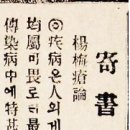 寄書
楊梅瘡論
◎疾病은人의게
均屬可畏로ᄃᆡ最
傳染病中에特甚